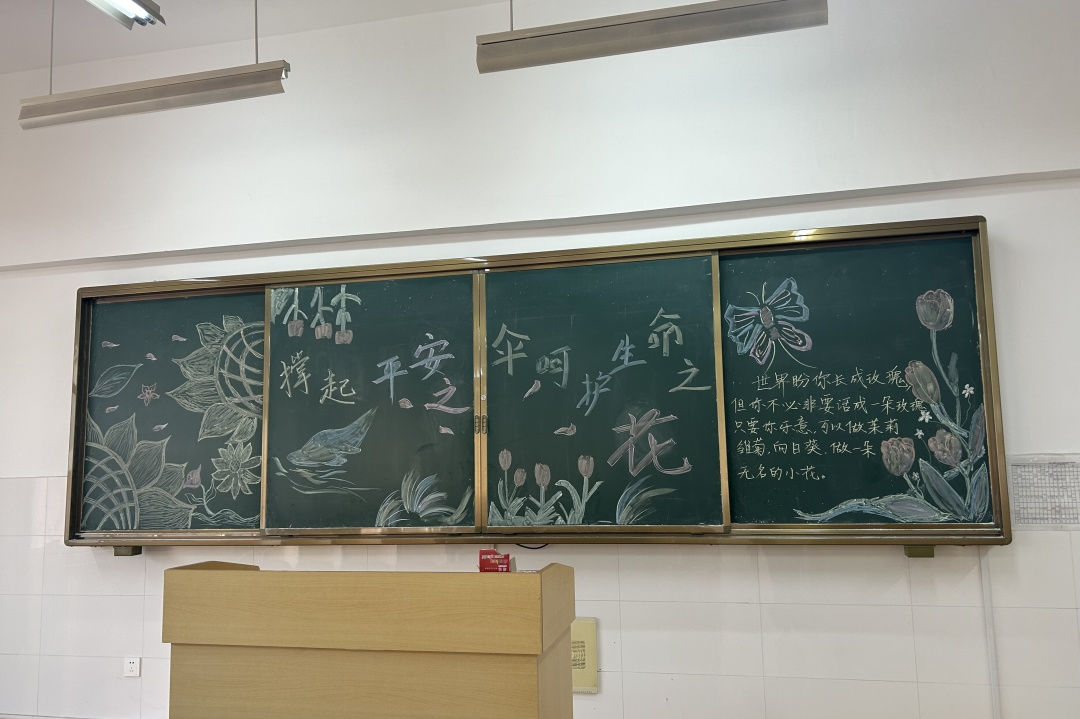 撑起平安之伞呵护生命之花
世界盼你长成玫瑰
但你不必非要活成一朵玫瑰
只要你乐意,可以做茉莉
雏菊,向日葵,做一朵
无名的小花。